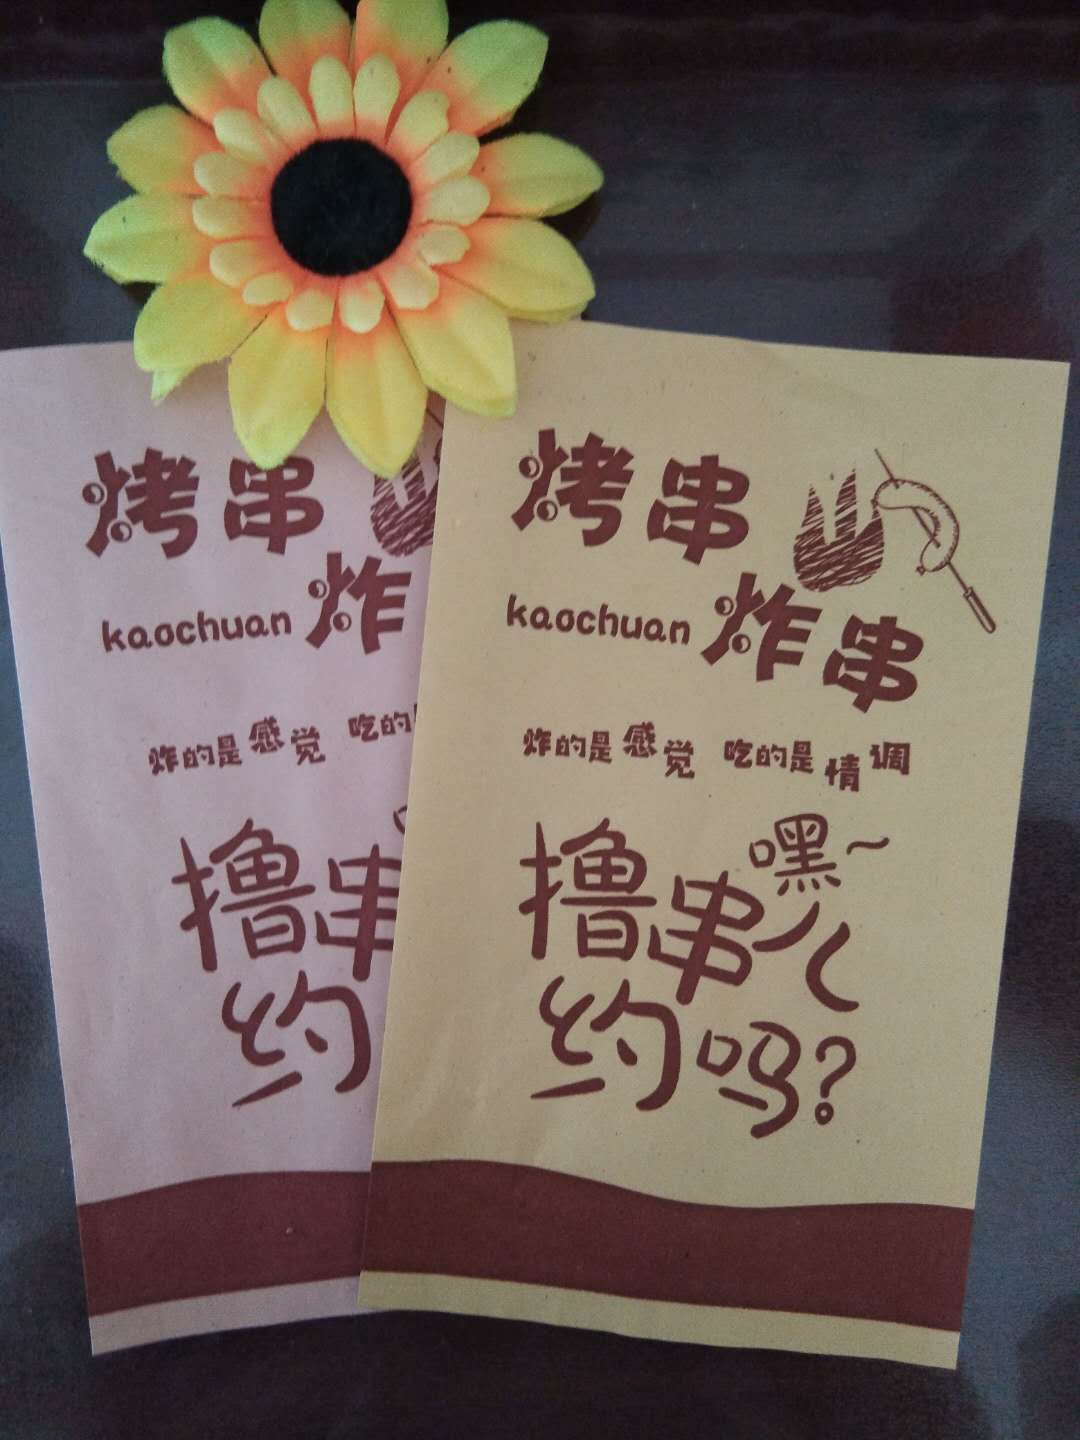 烤串
kaochuan 炸
炸的是感觉 吃的
撸串
约
烤串
kaochuan 炸串
炸的是感觉 吃的是情调
嘿~
撸串儿
约吗?